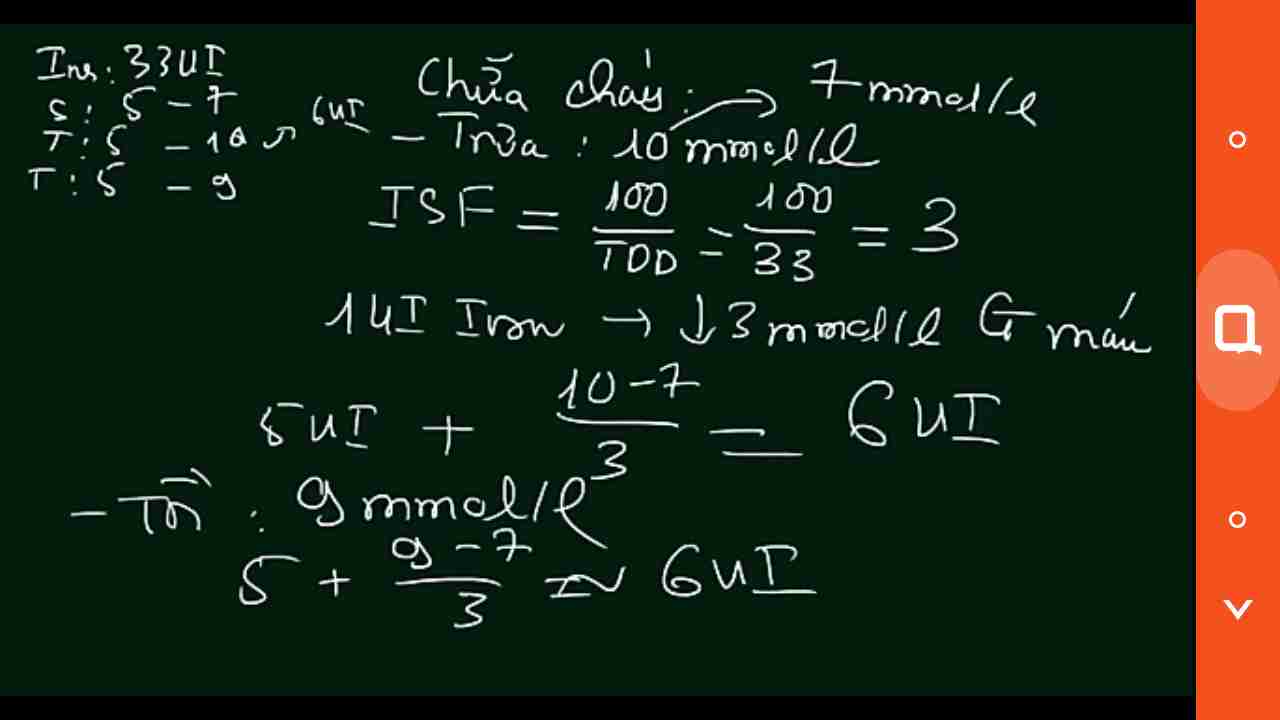 Ins: 33UI
S: 5 - 7
T: 5 - 10 → 6UI
T: 5 - 9
Chữa cháy:
- Trưa: 10 mmol/l → 7 mmol/l
ISF = 100/TDD = 100/33 = 3
1UI → ↓ 3 mmol/l G máu
5UI + (10 - 7)/3 = 6UI
- Tối: 9 mmol/l
5 + (9 - 7)/3 ≈ 6UI